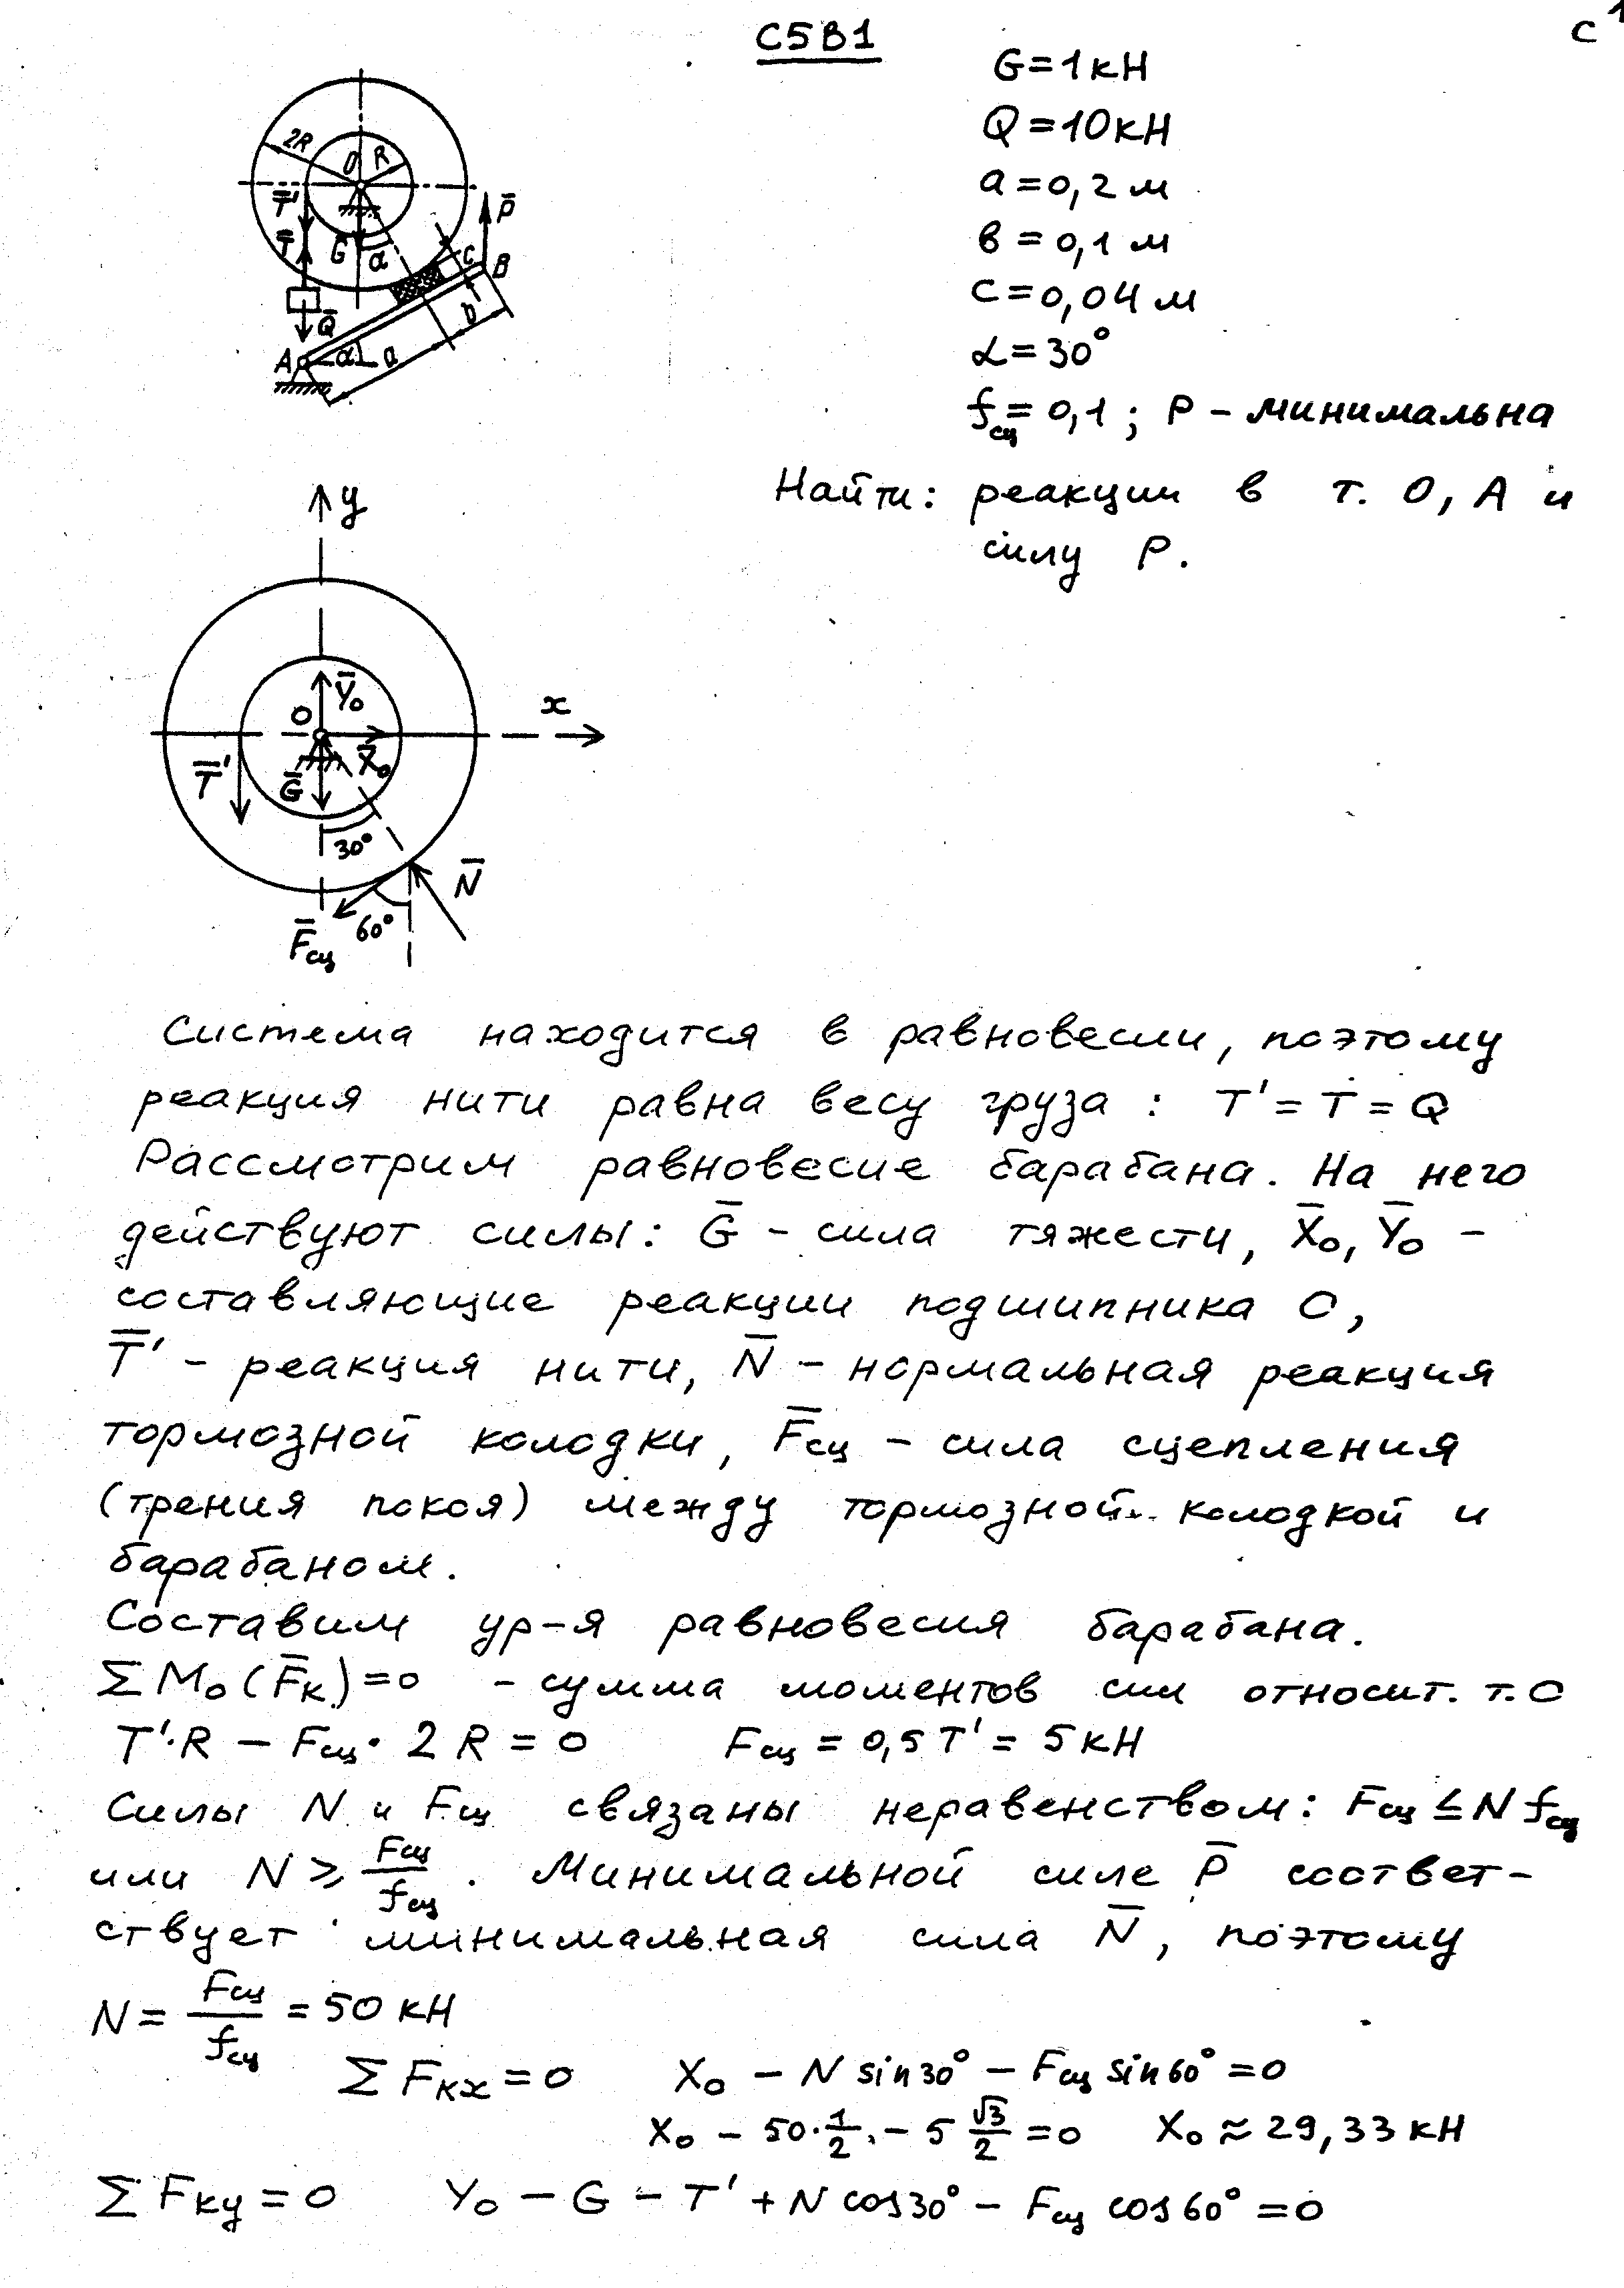 С5В1
с 1
G = 1 кН
Q = 10 кН
a = 0,2 м
в = 0,1 м
c = 0,04 м
α = 30°
fсц = 0,1 ; P – минимальна
Найти: реакции в т. О, А и
силу P.
2R
O
R
T̅'
T̅
G̅
α
P̅
C
B
b
Q̅
A
α
a
y
Y̅o
O
x
X̅o
T̅'
G̅
30°
N̅
60°
F̅сц
Система находится в равновесии, поэтому
реакция нити равна весу груза : T' = T = Q
Рассмотрим равновесие барабана. На него
действуют силы: G̅ – сила тяжести, X̅o, Y̅o –
составляющие реакции подшипника О,
T̅' – реакция нити, N̅ – нормальная реакция
тормозной колодки, F̅сц – сила сцепления
(трения покоя) между тормозной колодкой и
барабаном.
Составим ур-я равновесия барабана.
∑ Mo (F̅к) = 0 – сумма моментов сил относит. т. О
T'·R – Fсц · 2R = 0 Fсц = 0,5 T' = 5 кН
Силы N и Fсц связаны неравенством: Fсц ≤ N fсц
или N ≥ Fсц/fсц . Минимальной силе P̅ соответ-
ствует минимальная сила N̅, поэтому
N = Fсц/fсц = 50 кН
∑ Fкx = 0 Xo – N sin 30° – Fсц sin 60° = 0
Xo – 50·1/2 – 5 √3/2 = 0 Xo ≈ 29,33 кН
∑ Fкy = 0 Yo – G – T' + N cos 30° – Fсц cos 60° = 0